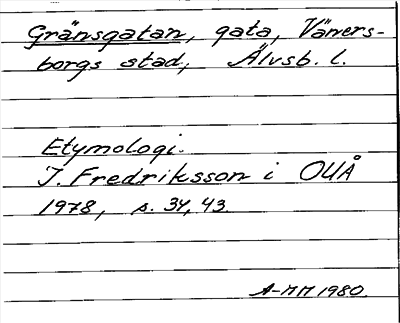 Gränsgatan, gata, Väners-
borgs stad, Älvsb. l.
Etymologi.
J. Fredriksson i OUÅ
1978, s. 34, 43.
A-MM 1980.